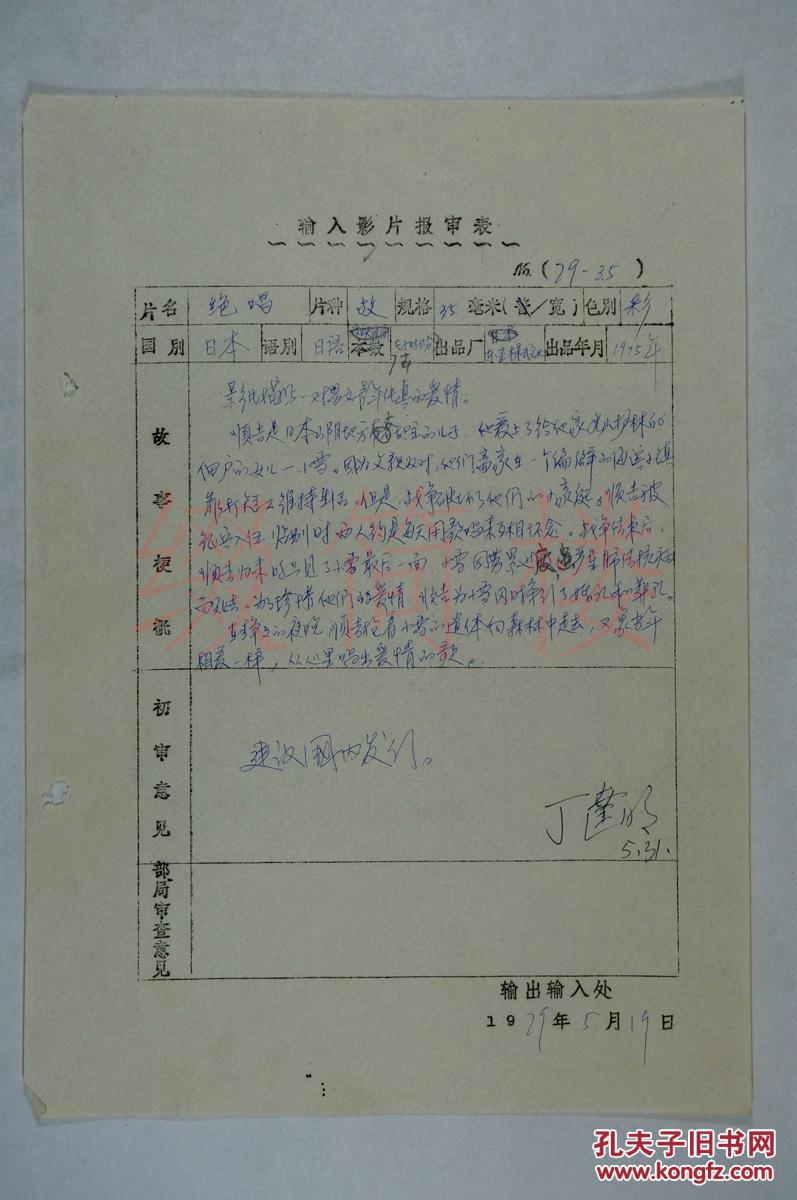 输入影片报审表
No.(79-35)
片名 绝唱 片种 故 规格 35毫米(普/宽) 色别 彩
国别 日本 语别 日语 本数 出品厂 东宝株式会社 出品年月 1975年
故事梗概
影片描写一对男女青年纯真的爱情。
顺吉是日本山阴地方 地主的儿子,他爱上了给他家 山护林的
佃户的女儿——小雪。因为父亲反对,他们离家在一个偏僻的海滨小镇
靠打短工维持生活。但是,战争破坏了他们的小家庭。顺吉被
征兵入伍,临别时两人约定每天用歌唱来互相怀念。战争结束后,
顺吉归来时只见了小雪最后一面,小雪因劳累过度
而死去。为了珍惜他们的爱情,顺吉为小雪同时举行了婚礼和葬礼。
在 的夜晚,顺吉抱着小雪的遗体向森林中走去,又象当年
相爱一样,从心里唱出爱情的歌。
初审意见
建议国内发行。
丁
5.31.
部局审查意见
输出输入处
1979年5月19日
孔夫子旧书网
www.kongfz.com